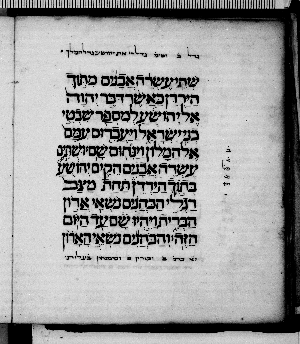 שתי עשרה אבנים מתוך
הירדן כאשר דבר יהוה
אל יהושע למספר שבטי
בני ישראל ויעברום עמם
אל המלון וינחום שם ושתים
עשרה אבנים הקים יהושע
בתוך הירדן תחת מצב
רגלי הכהנים נשאי ארון
הברית ויהיו שם עד היום
הזה והכהנים נשאי הארון